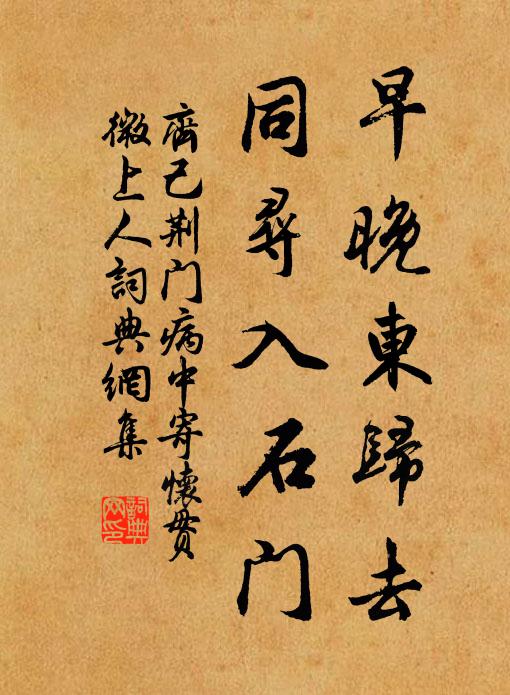 早晚東歸去
同尋入石门
齊己荆门病中寄懷貫
微上人詞典網集
詞典网印